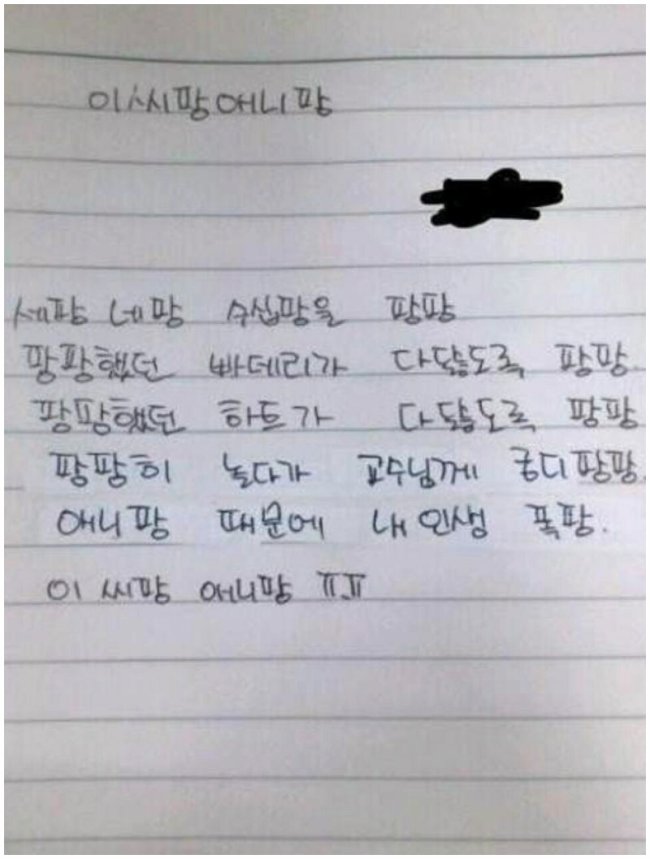 이 씨팡 애니팡
세팡 네팡 수십팡을 팡팡
팡팡했던 빠데리가 다닳도록 팡팡.
팡팡했던 하트가 다닳도록 팡팡
팡팡히 놀다가 교수님께 궁디팡팡.
애니팡 때문에 내 인생 폭팡.
이 씨팡 애니팡 ㅠㅠ